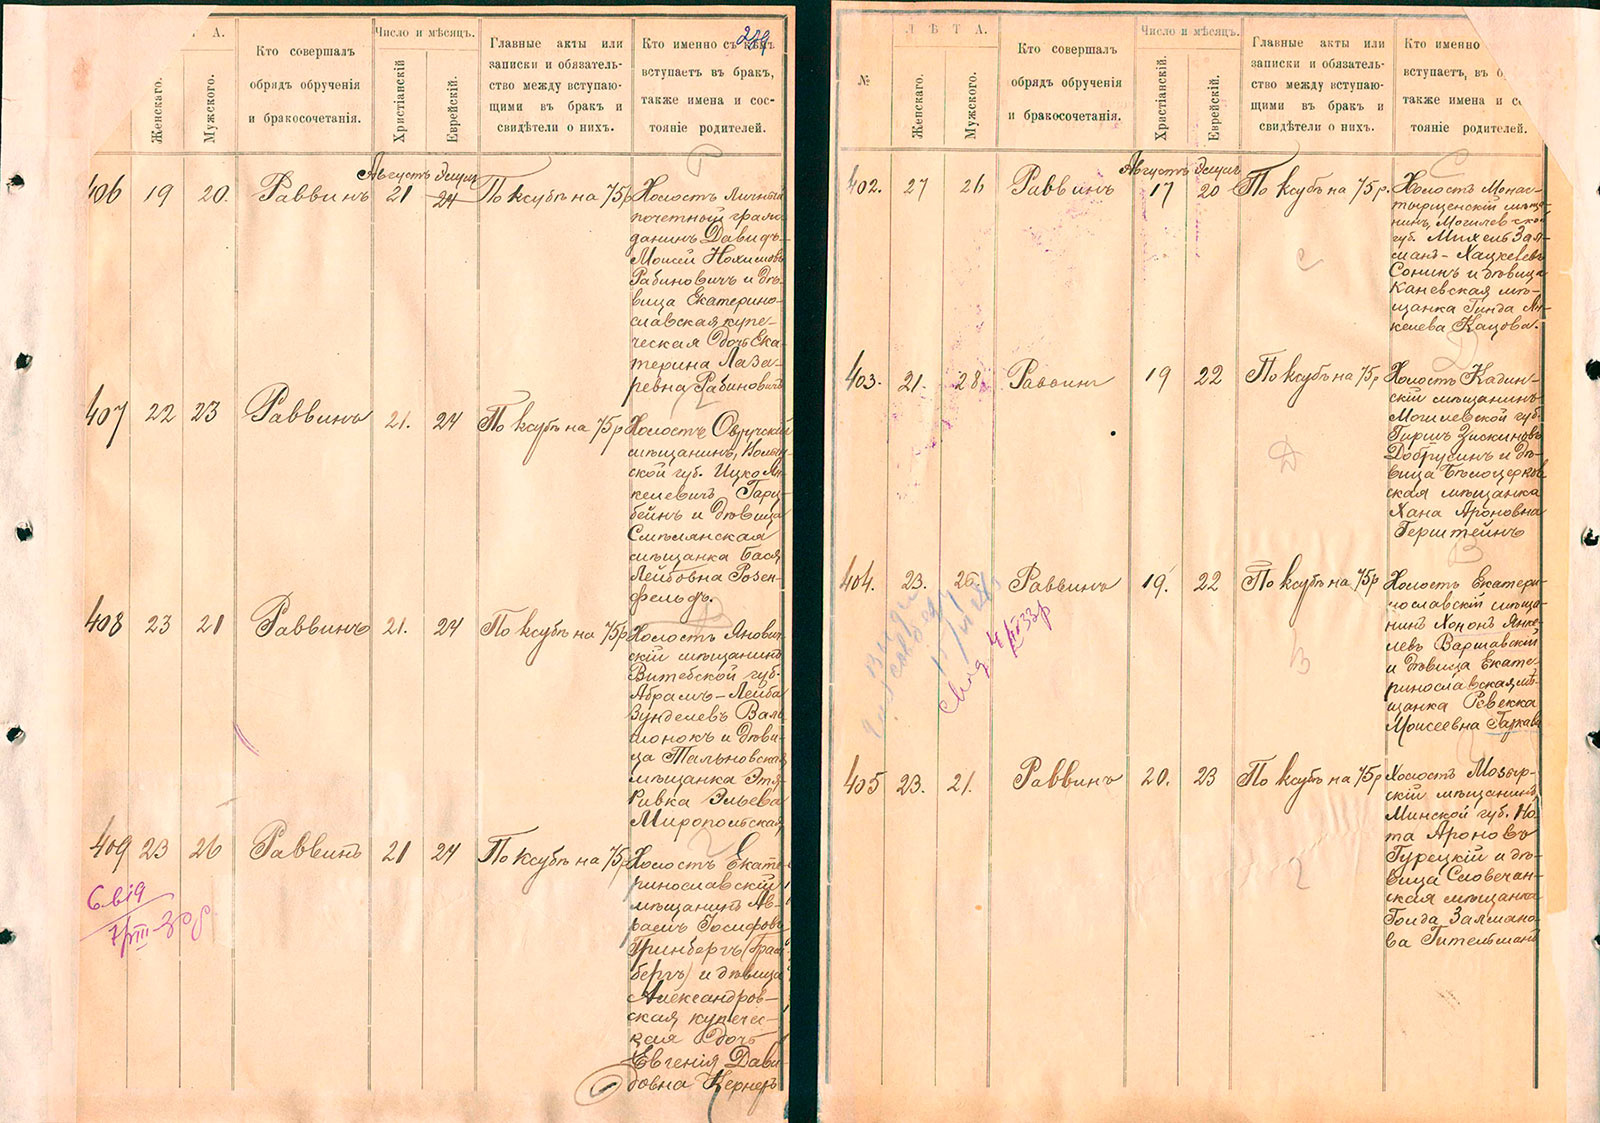 Л А.
Женскаго.
Мужского.
Кто совершалъ
обрядъ обрученія
и бракосочетанія.
Число и мѣсяцъ.
Христіанскій
Еврейскій.
Главные акты или
записки и обязатель-
ство между вступаю-
щими въ бракъ и
свидѣтели о нихъ.
289
Кто именно съ кѣмъ
вступаетъ въ бракъ,
также имена и сос-
тояніе родителей.
Августъ Элулъ
406 19 20. Раввинъ 21 24 По ксубѣ на 75р
Холостъ Личный
почетный граж-
данинъ Давидъ-
Моисей Нохимовъ
Рабиновичъ и дѣ-
вица Екатерино-
славская купе-
ческая дочь Ека-
терина Лаза-
ревна Рабиновичъ
407 22 23 Раввинъ 21. 24 По ксубѣ на 75р
Холостъ Овручскій
мѣщанинъ, Волын-
ской губ. Ицко Ян-
келевичъ Гарц-
бейнъ и дѣвица
Смѣлянская
мѣщанка Бася
Лейбовна Розен-
фельдъ.
408 23 21 Раввинъ 21. 24 По ксубѣ на 75р
Холостъ Янович-
скій мѣщанинъ
Витебской губ.
Абрамъ-Лейба
Зунделевъ Валь-
монокъ и дѣви-
ца Тальновская
мѣщанка Этя-
Ривка Эльева
Миропольская
409 23 26 Раввинъ 21 24 По ксубѣ на 75р
Холостъ Екате-
ринославскій
мѣщанинъ Ав-
раамъ Іосифовъ
Гринбергъ
бергъ) и дѣвица
Александров-
ская купечес-
кая дочь
Евгенія Дави-
довна Кернеръ
№
Л Ѣ Т А.
Женскаго.
Мужского.
Кто совершалъ
обрядъ обрученія
и бракосочетанія.
Число и мѣсяцъ.
Христіанскій.
Еврейскій.
Главные акты или
записки и обязатель-
ство между вступаю-
щими въ бракъ и
свидѣтели о нихъ.
Кто именно
вступаетъ, въ б
также имена и со
тояніе родителей.
Августъ Элулъ
402. 27 26 Раввинъ 17 20 По ксубѣ на 75р.
Холостъ Монас-
тырщенскій мѣща-
нинъ, Могилевской
губ. Михель Зал-
манъ-Хацкелевъ
Сонинъ и дѣвица
Каневская мѣ-
щанка Гинда Ян-
келева Кацова.
403. 21. 28. Раввинъ 19 22 По ксубѣ на 75р
Холостъ Кадин-
скій мѣщанинъ
Могилевской губ.
Гиршъ Зискиновъ
Добрусинъ и дѣ-
вица Бѣлоцерков-
ская мѣщанка
Хана Ароновна
Герштейнъ
404. 23. 25. Раввинъ 19. 22 По ксубѣ на 75р
Холостъ Екатери-
нославскій мѣща-
нинъ Хононъ Янке-
левъ Варшавскій
и дѣвица Екате-
ринославская мѣ-
щанка Ревекка
Моисеевна Гаркави
405 23. 21. Раввинъ 20. 23 По ксубѣ на 75р
Холостъ Мозыр-
скій мѣщанинъ
Минской губ. Но-
та Ароновъ
Турецкій и дѣ-
вица Словечан-
ская мѣщанка
Голда Залмано-
ва Гительманъ